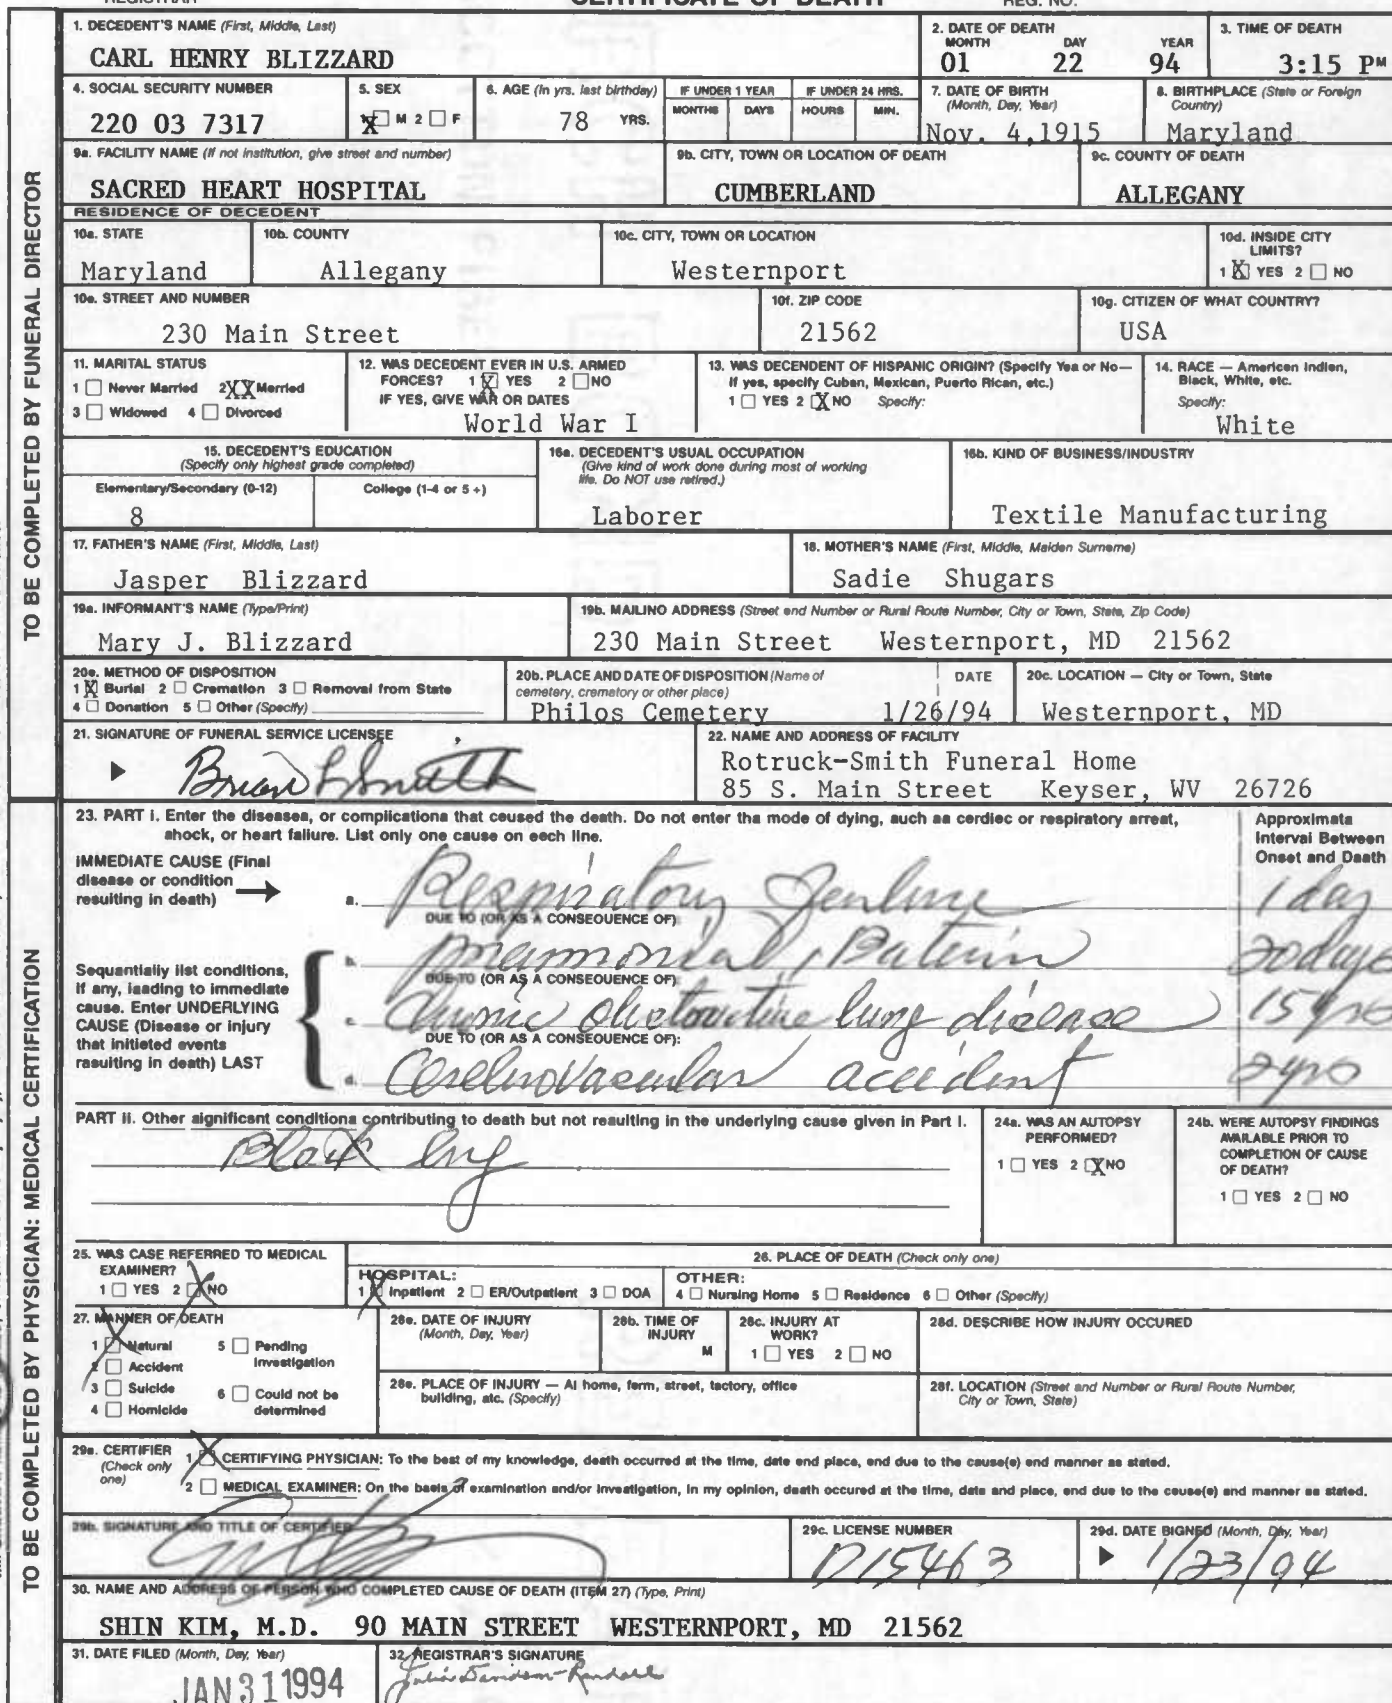 CERTIFICATE OF DEATH
REGISTRAR REG. NO.
TO BE COMPLETED BY FUNERAL DIRECTOR
1. DECEDENT'S NAME (First, Middle, Last)
CARL HENRY BLIZZARD
2. DATE OF DEATH
MONTH DAY YEAR
01 22 94
3. TIME OF DEATH
3:15 PM
4. SOCIAL SECURITY NUMBER
220 03 7317
5. SEX
1 X M 2 ☐ F
6. AGE (In yrs. last birthday)
78 YRS.
IF UNDER 1 YEAR
MONTHS DAYS
IF UNDER 24 HRS.
HOURS MIN.
7. DATE OF BIRTH
(Month, Day, Year)
Nov. 4,1915
8. BIRTHPLACE (State or Foreign
Country)
Maryland
9a. FACILITY NAME (If not institution, give street and number)
SACRED HEART HOSPITAL
9b. CITY, TOWN OR LOCATION OF DEATH
CUMBERLAND
9c. COUNTY OF DEATH
ALLEGANY
RESIDENCE OF DECEDENT
10a. STATE
Maryland
10b. COUNTY
Allegany
10c. CITY, TOWN OR LOCATION
Westernport
10d. INSIDE CITY
LIMITS?
1 X YES 2 ☐ NO
10e. STREET AND NUMBER
230 Main Street
10f. ZIP CODE
21562
10g. CITIZEN OF WHAT COUNTRY?
USA
11. MARITAL STATUS
1 ☐ Never Married 2XX Married
3 ☐ Widowed 4 ☐ Divorced
12. WAS DECEDENT EVER IN U.S. ARMED
FORCES? 1 X YES 2 ☐ NO
IF YES, GIVE WAR OR DATES
World War I
13. WAS DECENDENT OF HISPANIC ORIGIN? (Specify Yes or No—
If yes, specify Cuban, Mexican, Puerto Rican, etc.)
1 ☐ YES 2 X NO Specify:
14. RACE — American Indien,
Black, White, etc.
Specify:
White
15. DECEDENT'S EDUCATION
(Specify only highest grade completed)
Elementary/Secondary (0-12) College (1-4 or 5 +)
8
16a. DECEDENT'S USUAL OCCUPATION
(Give kind of work done during most of working
life. Do NOT use retired.)
Laborer
16b. KIND OF BUSINESS/INDUSTRY
Textile Manufacturing
17. FATHER'S NAME (First, Middle, Last)
Jasper Blizzard
18. MOTHER'S NAME (First, Middle, Maiden Surname)
Sadie Shugars
19a. INFORMANT'S NAME (Type/Print)
Mary J. Blizzard
19b. MAILING ADDRESS (Street and Number or Rural Route Number, City or Town, State, Zip Code)
230 Main Street Westernport, MD 21562
20a. METHOD OF DISPOSITION
1 X Burial 2 ☐ Cremation 3 ☐ Removal from State
4 ☐ Donation 5 ☐ Other (Specify)
20b. PLACE AND DATE OF DISPOSITION (Name of
cemetery, crematory or other place)
DATE
Philos Cemetery 1/26/94
20c. LOCATION — City or Town, State
Westernport, MD
21. SIGNATURE OF FUNERAL SERVICE LICENSEE
Brian L Smith
22. NAME AND ADDRESS OF FACILITY
Rotruck-Smith Funeral Home
85 S. Main Street Keyser, WV 26726
TO BE COMPLETED BY PHYSICIAN: MEDICAL CERTIFICATION
23. PART I. Enter the diseases, or complications that caused the death. Do not enter the mode of dying, such as cardiac or respiratory arrest,
shock, or heart failure. List only one cause on each line.
Approximate
Interval Between
Onset and Death
IMMEDIATE CAUSE (Final
disease or condition
resulting in death)
a. Respiratory Failure 1 day
DUE TO (OR AS A CONSEQUENCE OF)
Sequentially list conditions,
if any, leading to immediate
cause. Enter UNDERLYING
CAUSE (Disease or injury
that initiated events
resulting in death) LAST
b. 20 days
DUE TO (OR AS A CONSEQUENCE OF)
c. Chronic obstructive lung disease 15 yrs
DUE TO (OR AS A CONSEQUENCE OF):
d. Cerebrovascular accident 2 yrs
PART II. Other significant conditions contributing to death but not resulting in the underlying cause given in Part I.
Black lung
24a. WAS AN AUTOPSY
PERFORMED?
1 ☐ YES 2 X NO
24b. WERE AUTOPSY FINDINGS
AVAILABLE PRIOR TO
COMPLETION OF CAUSE
OF DEATH?
1 ☐ YES 2 ☐ NO
25. WAS CASE REFERRED TO MEDICAL
EXAMINER?
1 ☐ YES 2 X NO
26. PLACE OF DEATH (Check only one)
HOSPITAL:
1 X Inpatient 2 ☐ ER/Outpatient 3 ☐ DOA
OTHER:
4 ☐ Nursing Home 5 ☐ Residence 6 ☐ Other (Specify)
27. MANNER OF DEATH
1 X Natural 5 ☐ Pending
Investigation
2 ☐ Accident
3 ☐ Suicide 6 ☐ Could not be
determined
4 ☐ Homicide
28a. DATE OF INJURY
(Month, Day, Year)
28b. TIME OF
INJURY
M
28c. INJURY AT
WORK?
1 ☐ YES 2 ☐ NO
28d. DESCRIBE HOW INJURY OCCURED
28e. PLACE OF INJURY — At home, farm, street, factory, office
building, etc. (Specify)
28f. LOCATION (Street and Number or Rural Route Number,
City or Town, State)
29a. CERTIFIER
(Check only
one)
1 X CERTIFYING PHYSICIAN: To the best of my knowledge, death occurred at the time, date and place, and due to the cause(s) and manner as stated.
2 ☐ MEDICAL EXAMINER: On the basis of examination and/or investigation, in my opinion, death occured at the time, date and place, and due to the cause(s) and manner as stated.
29b. SIGNATURE AND TITLE OF CERTIFIER
29c. LICENSE NUMBER
D15463
29d. DATE SIGNED (Month, Day, Year)
1/23/94
30. NAME AND ADDRESS OF PERSON WHO COMPLETED CAUSE OF DEATH (ITEM 27) (Type, Print)
SHIN KIM, M.D. 90 MAIN STREET WESTERNPORT, MD 21562
31. DATE FILED (Month, Day, Year)
JAN 31 1994
32. REGISTRAR'S SIGNATURE
Julia Davidson-Randall